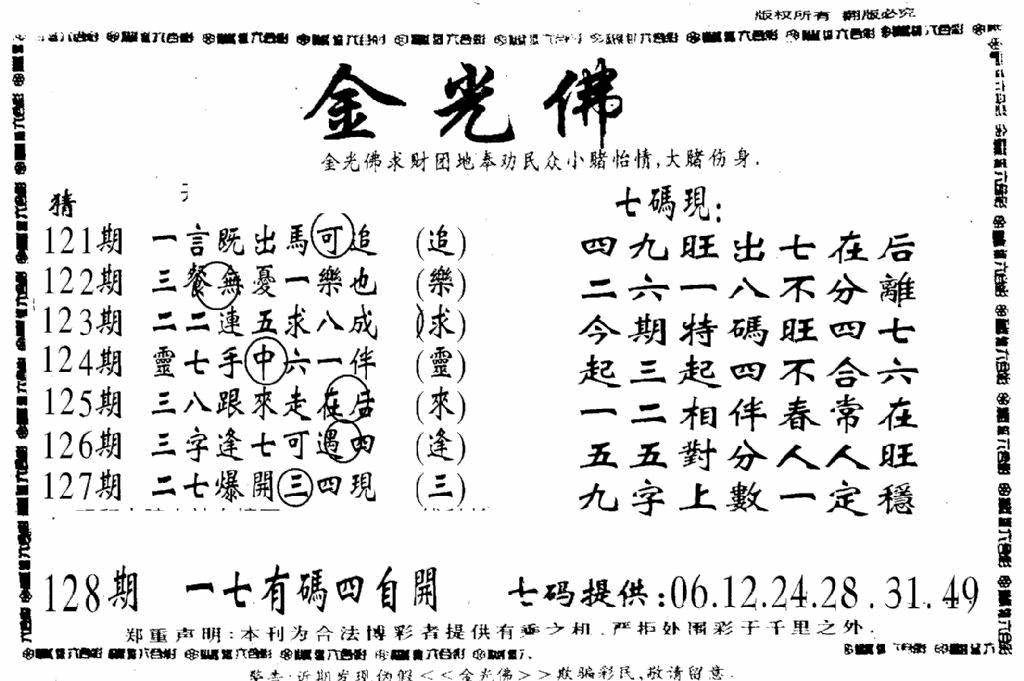 版权所有 翻版必究
金光佛
金光佛求财团地奉劝民众小赌怡情,大赌伤身.
猜
七碼現:
121期 一言既出馬可追 (追)
四九旺出七在后
122期 三餐無憂一樂也 (樂)
二六一八不分離
123期 二二連五求八成 (求)
今期特碼旺四七
124期 靈七手中六一伴 (靈)
起三起四不合六
125期 三八跟來走在后 (來)
一二相伴春常在
126期 三字逢七可遇四 (逢)
五五對分人人旺
127期 二七爆開三四現 (三)
九字上數一定穩
128期 一七有碼四自開 七码提供:06.12.24.28.31.49
郑重声明:本刊为合法博彩者提供有乘之机.严拒处围彩于千里之外.
警告:近期发现伪假<<金光佛>>欺骗彩民,敬请留意.